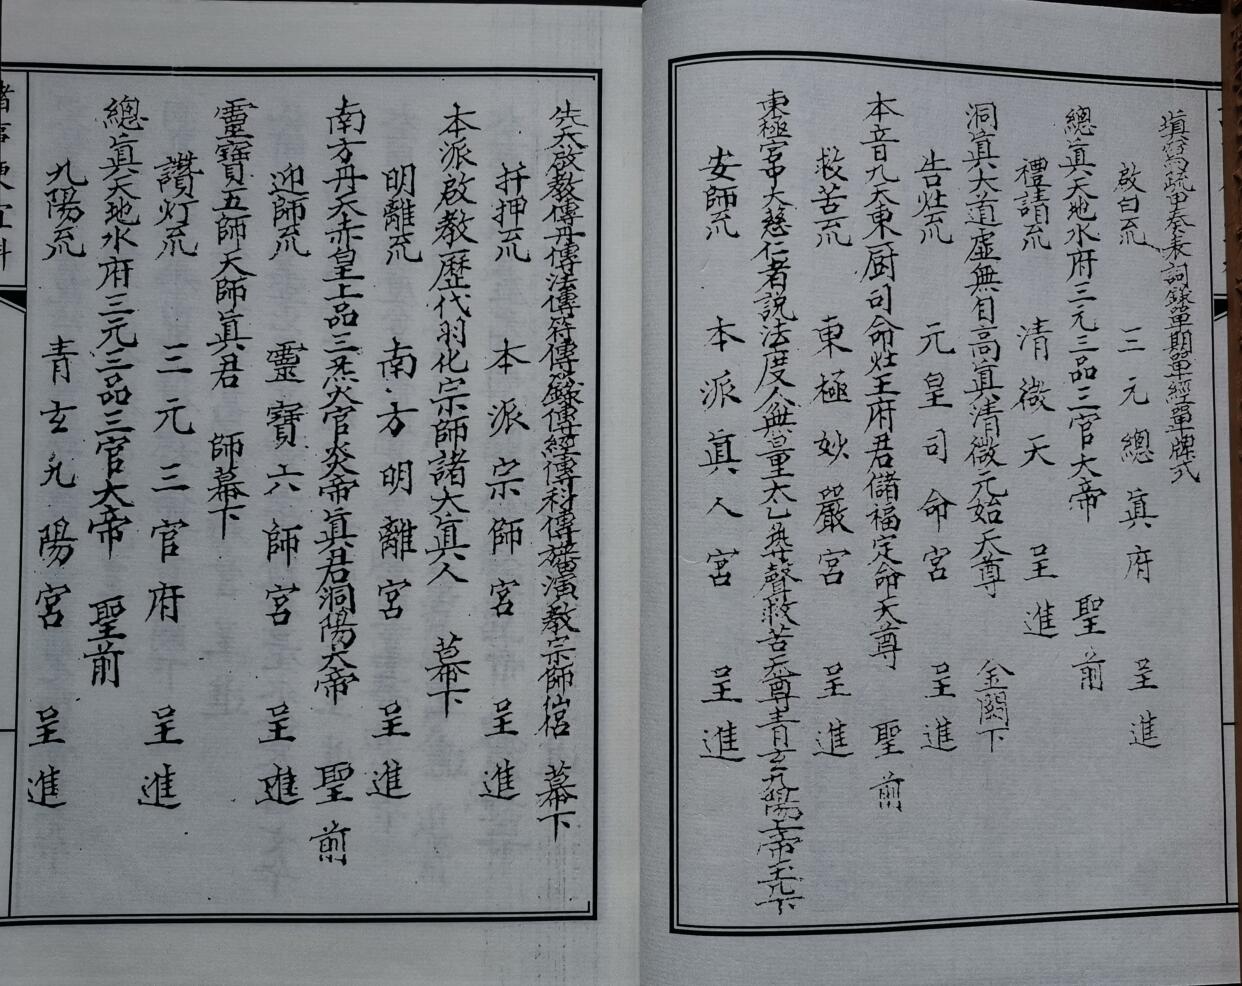 填寫疏申奏表詞錄單期單經單牌式
啟白㐬 三元總真府 呈進
總真天地水府三元三品三官大帝 聖前
禮請㐬 清微天 呈進
洞真大道虛無自高真清微元始天尊 金闕下
告灶㐬 元皇司命宮 呈進
本音九天東厨司命灶王府君儲福定命天尊 聖前
救苦㐬 東極妙嚴宮 呈進
東極宮中大慈仁者說法度人無量太乙尋聲救苦天尊青玄九陽上帝玉几下
安師㐬 本派真人宮 呈進
先天啟教傳丹傳法傳符傳籙傳經傳科傳演教宗師 幕下
拜押㐬 本派宗師宮 呈進
本派啟教歷代羽化宗師諸大真人 幕下
明離㐬 南方明離宮 呈進
南方丹天赤皇上品三炁火官炎帝真君洞陽大帝 聖前
迎師㐬 靈寶六師宮 呈進
靈寶五師天師真君 師幕下
讚灯㐬 三元三官府 呈進
總真天地水府三元三品三官大帝 聖前
九陽㐬 青玄九陽宮 呈進